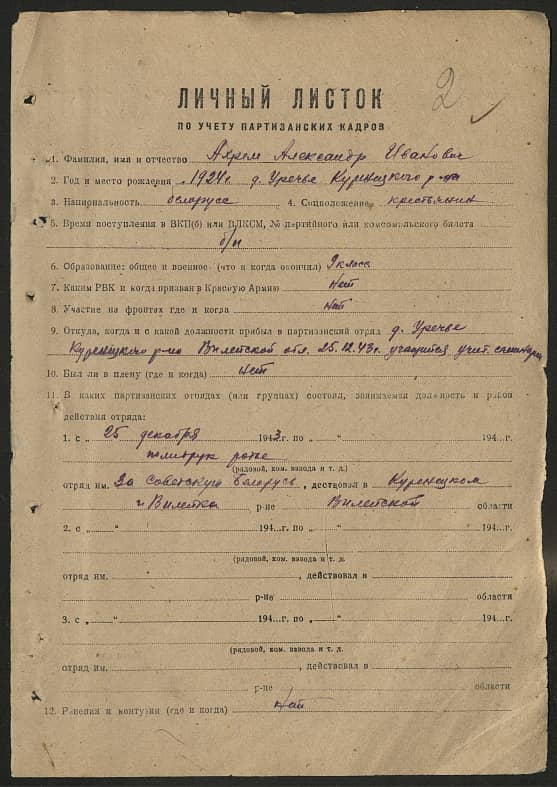 2
ЛИЧНЫЙ ЛИСТОК
ПО УЧЕТУ ПАРТИЗАНСКИХ КАДРОВ
1. Фамилия, имя и отчество Ахрем Александр Иванович
2. Год и место рождения 1924г. д. Уречье Куренецкого р-на
3. Национальность белорусс 4. Соцположение крестьянин
5. Время поступления в ВКП(б) или ВЛКСМ, № партийного или комсомольского билета
б/п
6. Образование: общее и военное (что и когда окончил) 9 класс
7. Каким РВК и когда призван в Красную Армию Нет
8. Участие на фронтах где и когда Нет
9. Откуда, когда и с какой должности прибыл в партизанский отряд д. Уречье
Куренецкого р-на Вилейской обл. 25.12.43г. учащийся учит. семинарии
10. Был ли в плену (где и когда) Нет
11. В каких партизанских отрядах (или группах) состоял, занимаемая должность и район
действия отряда:
1. с „ 25 декабря 1943 г. по „ “ 194 г.
политрук роты
(рядовой, ком. взвода и т. д.)
отряд им. За Советскую Беларусь, действовал в Куренецком
и Вилейка р-не Вилейской области
2. с „ “ 194 г. по „ “ 194 г.
(рядовой, ком. взвода и т. д.
отряд им. , действовал в
р-не области
3. с „ “ 194 г. по „ “ 194 г.
(рядовой, ком. взвода и т. д.
отряд им. , действовал в
р-не области
12. Ранения и контузии (где и когда) Нет